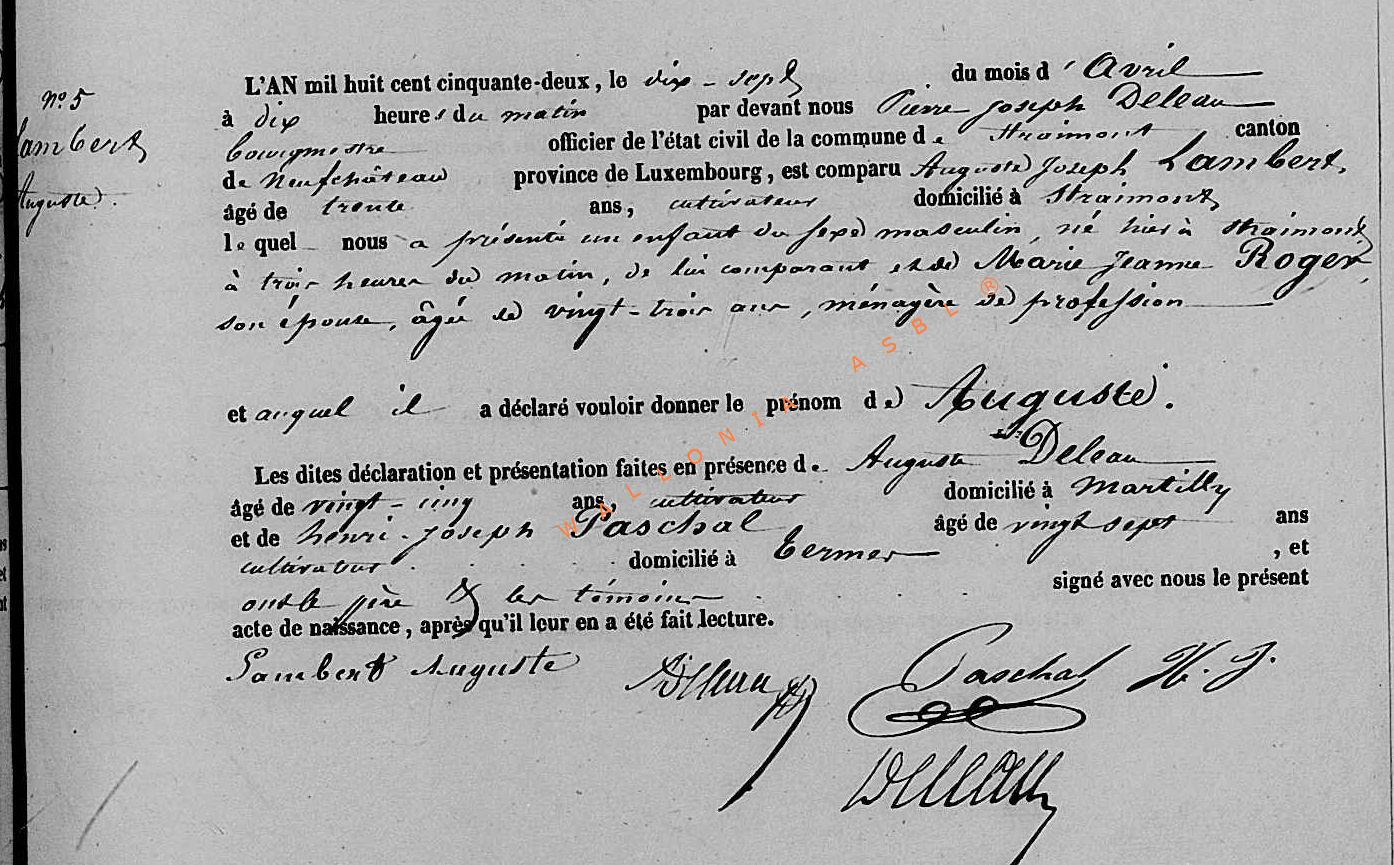 n° 5
Lambert
Auguste.
L'AN mil huit cent cinquante-deux, le dix-sept du mois d'Avril
à dix heures du matin par devant nous Pierre Joseph Deleau
bourgmestre officier de l'état civil de la commune de Straimont canton
de Neufchâteau province de Luxembourg, est comparu Auguste Joseph Lambert,
âgé de trente ans, cultivateur domicilié à Straimont,
lequel nous a présenté un enfant du sexe masculin, né hier à Straimont
à trois heures du matin, de lui comparant et de Marie Jeanne Roger,
son épouse, âgée de vingt-trois ans, ménagère de profession
et auquel il a déclaré vouloir donner le prénom de Auguste.
Les dites déclaration et présentation faites en présence de Auguste Deleau
âgé de vingt-cinq ans, cultivateur domicilié à Martilly
et de henri-joseph Paschal âgé de vingt sept ans
cultivateur domicilié à Termes, et
ont le père & les témoins signé avec nous le présent
acte de naissance, après qu'il leur en a été fait lecture.
Lambert Auguste ADeleau Paschal H. J.
Deleau
WALLONIA ASBL ®